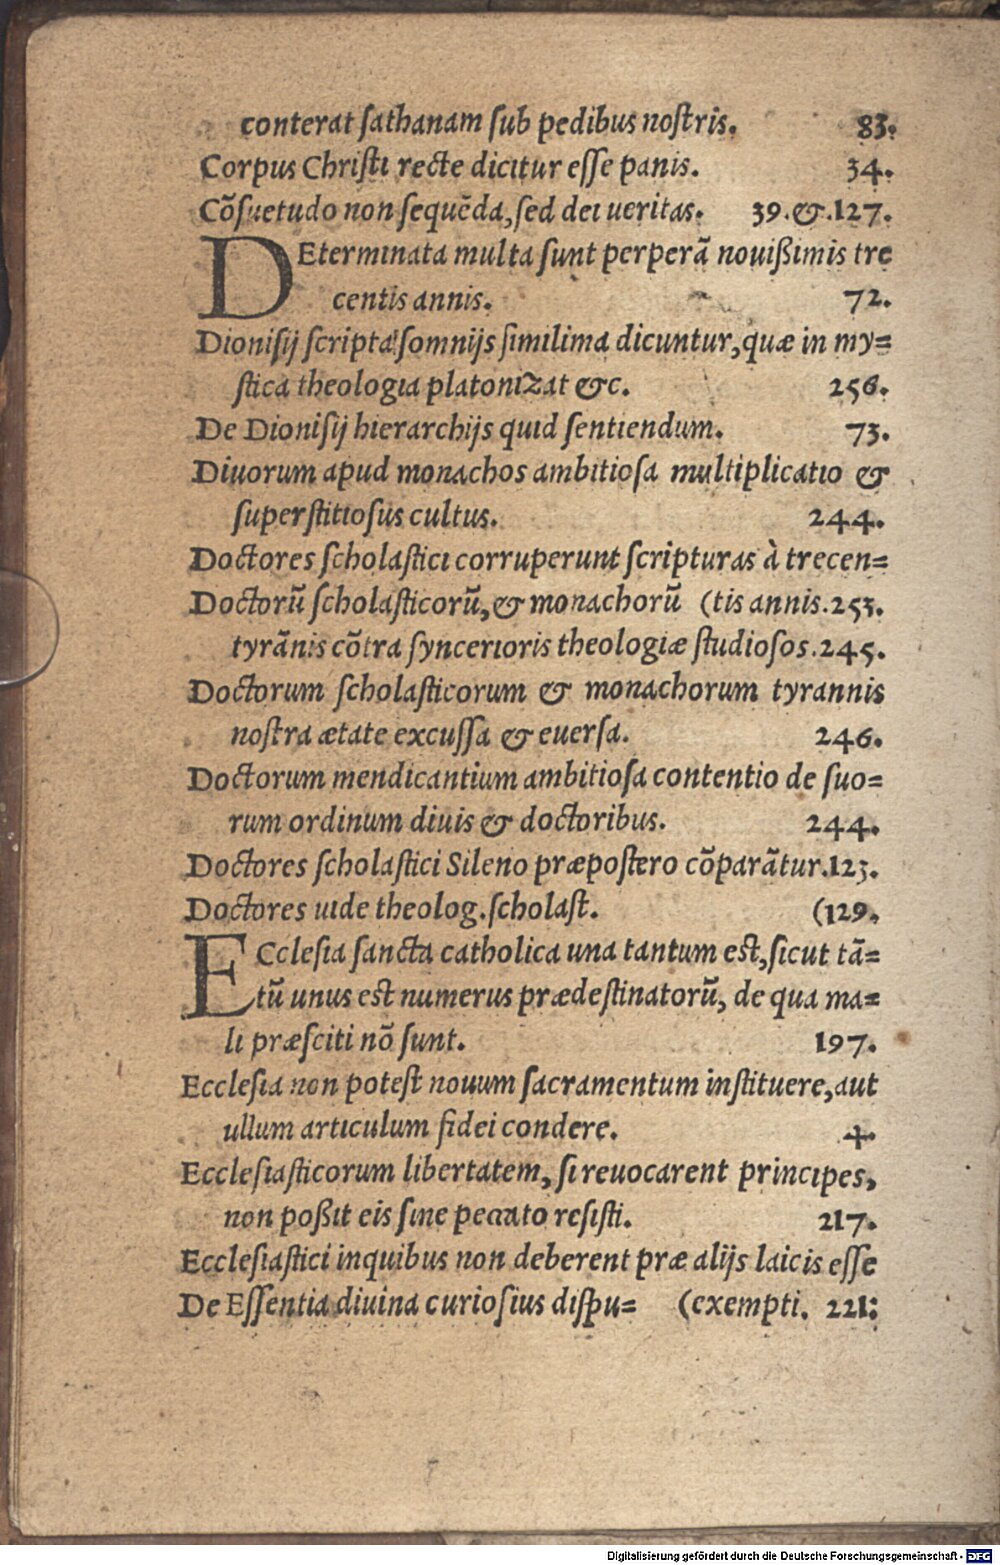 conterat sathanam sub pedibus nostris. 83.
Corpus Christi recte dicitur esse panis. 34.
Cõsuetudo non sequẽda, sed dei ueritas. 39.&.127.
DEterminata multa sunt perperã nouißimis tre
centis annis. 72.
Dionisij scripta somnijs similima dicuntur, quæ in my=
stica theologia platonizat &c. 256.
De Dionisij hierarchijs quid sentiendum. 73.
Diuorum apud monachos ambitiosa multiplicatio &
superstitiosus cultus. 244.
Doctores scholastici corruperunt scripturas à trecen=
Doctorũ scholasticorũ, & monachorũ (tis annis. 253.
tyrãnis cõtra syncerioris theologiæ studiosos. 245.
Doctorum scholasticorum & monachorum tyrannis
nostra ætate excussa & euersa. 246.
Doctorum mendicantium ambitiosa contentio de suo=
rum ordinum diuis & doctoribus. 244.
Doctores scholastici Sileno præpostero cõparãtur. 123.
Doctores uide theolog. scholast. (129.
ECclesia sancta catholica una tantum est, sicut tã=
tũ unus est numerus prædestinatorũ, de qua ma=
li præsciti nõ sunt. 197.
Ecclesia non potest nouum sacramentum instituere, aut
ullum articulum fidei condere. 4.
Ecclesiasticorum libertatem, si reuocarent principes,
non poßit eis sine peccato resisti. 217.
Ecclesiastici inquibus non deberent præ alijs laicis esse
De Essentia diuina curiosius dispu= (exempti. 221:
Digitalisierung gefördert durch die Deutsche Forschungsgemeinschaft - DFG